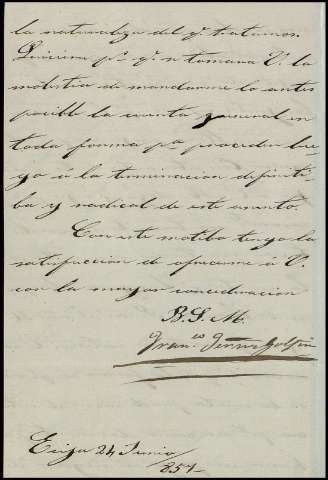 la naturaleza del qe. tratamos.
Quisiera pa. qe. se tomara V. la
molestia de mandarme lo antes
posible la cuenta general en
toda forma pa. proceder lue-
go á la terminacion definiti-
ba y radical de este asunto.
Con este motibo tengo la
satisfaccion de ofrecerme á V.
con la mayor concideracion
B. S. M.
Franco. Golfin
Ecija 24 Junio
1857